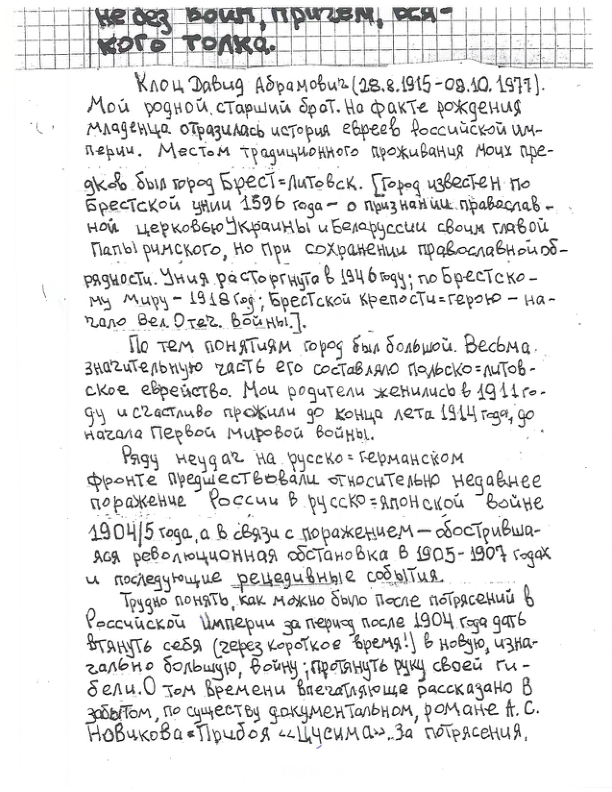 не без войн, причем, вся-
кого толка.
Клоц Давид Абрамович (28.8.1915-09.10.1977).
Мой родной старший брат. На факте рождения
младенца отразилась история евреев Российской им-
перии. Местом традиционного проживания моих пре-
дков был город Брест=Литовск. [Город известен по
Брестской унии 1596 года - о признании православ-
ной церковью Украины и Белоруссии своим главой
Папы римского, но при сохранении православной об-
рядности. Уния расторгнута в 1946 году; по Брестско-
му миру - 1918 год; Брестской крепости=герою - на-
чало Вел. Отеч. войны.].
По тем понятиям город был большой. Весьма
значительную часть его составляло польско=литов-
ское еврейство. Мои родители женились в 1911 го-
ду и счастливо прожили до конца лета 1914 года, до
начала Первой мировой войны.
Ряду неудач на русско=германском
фронте предшествовали относительно недавнее
поражение России в русско=японской войне
1904/5 года, а в связи с поражением - обостривша-
яся революционная обстановка в 1905-1907 годах
и последующие рецедивные события.
Трудно понять, как можно было после потрясений в
Российской Империи за период после 1904 года дать
втянуть себя (через короткое время!) в новую, изна-
чально большую, войну; протянуть руку своей ги-
бели. О том времени впечатляюще рассказано в
забытом, по существу документальном, романе А. С.
Новикова=Прибоя «Цусима». За потрясения,